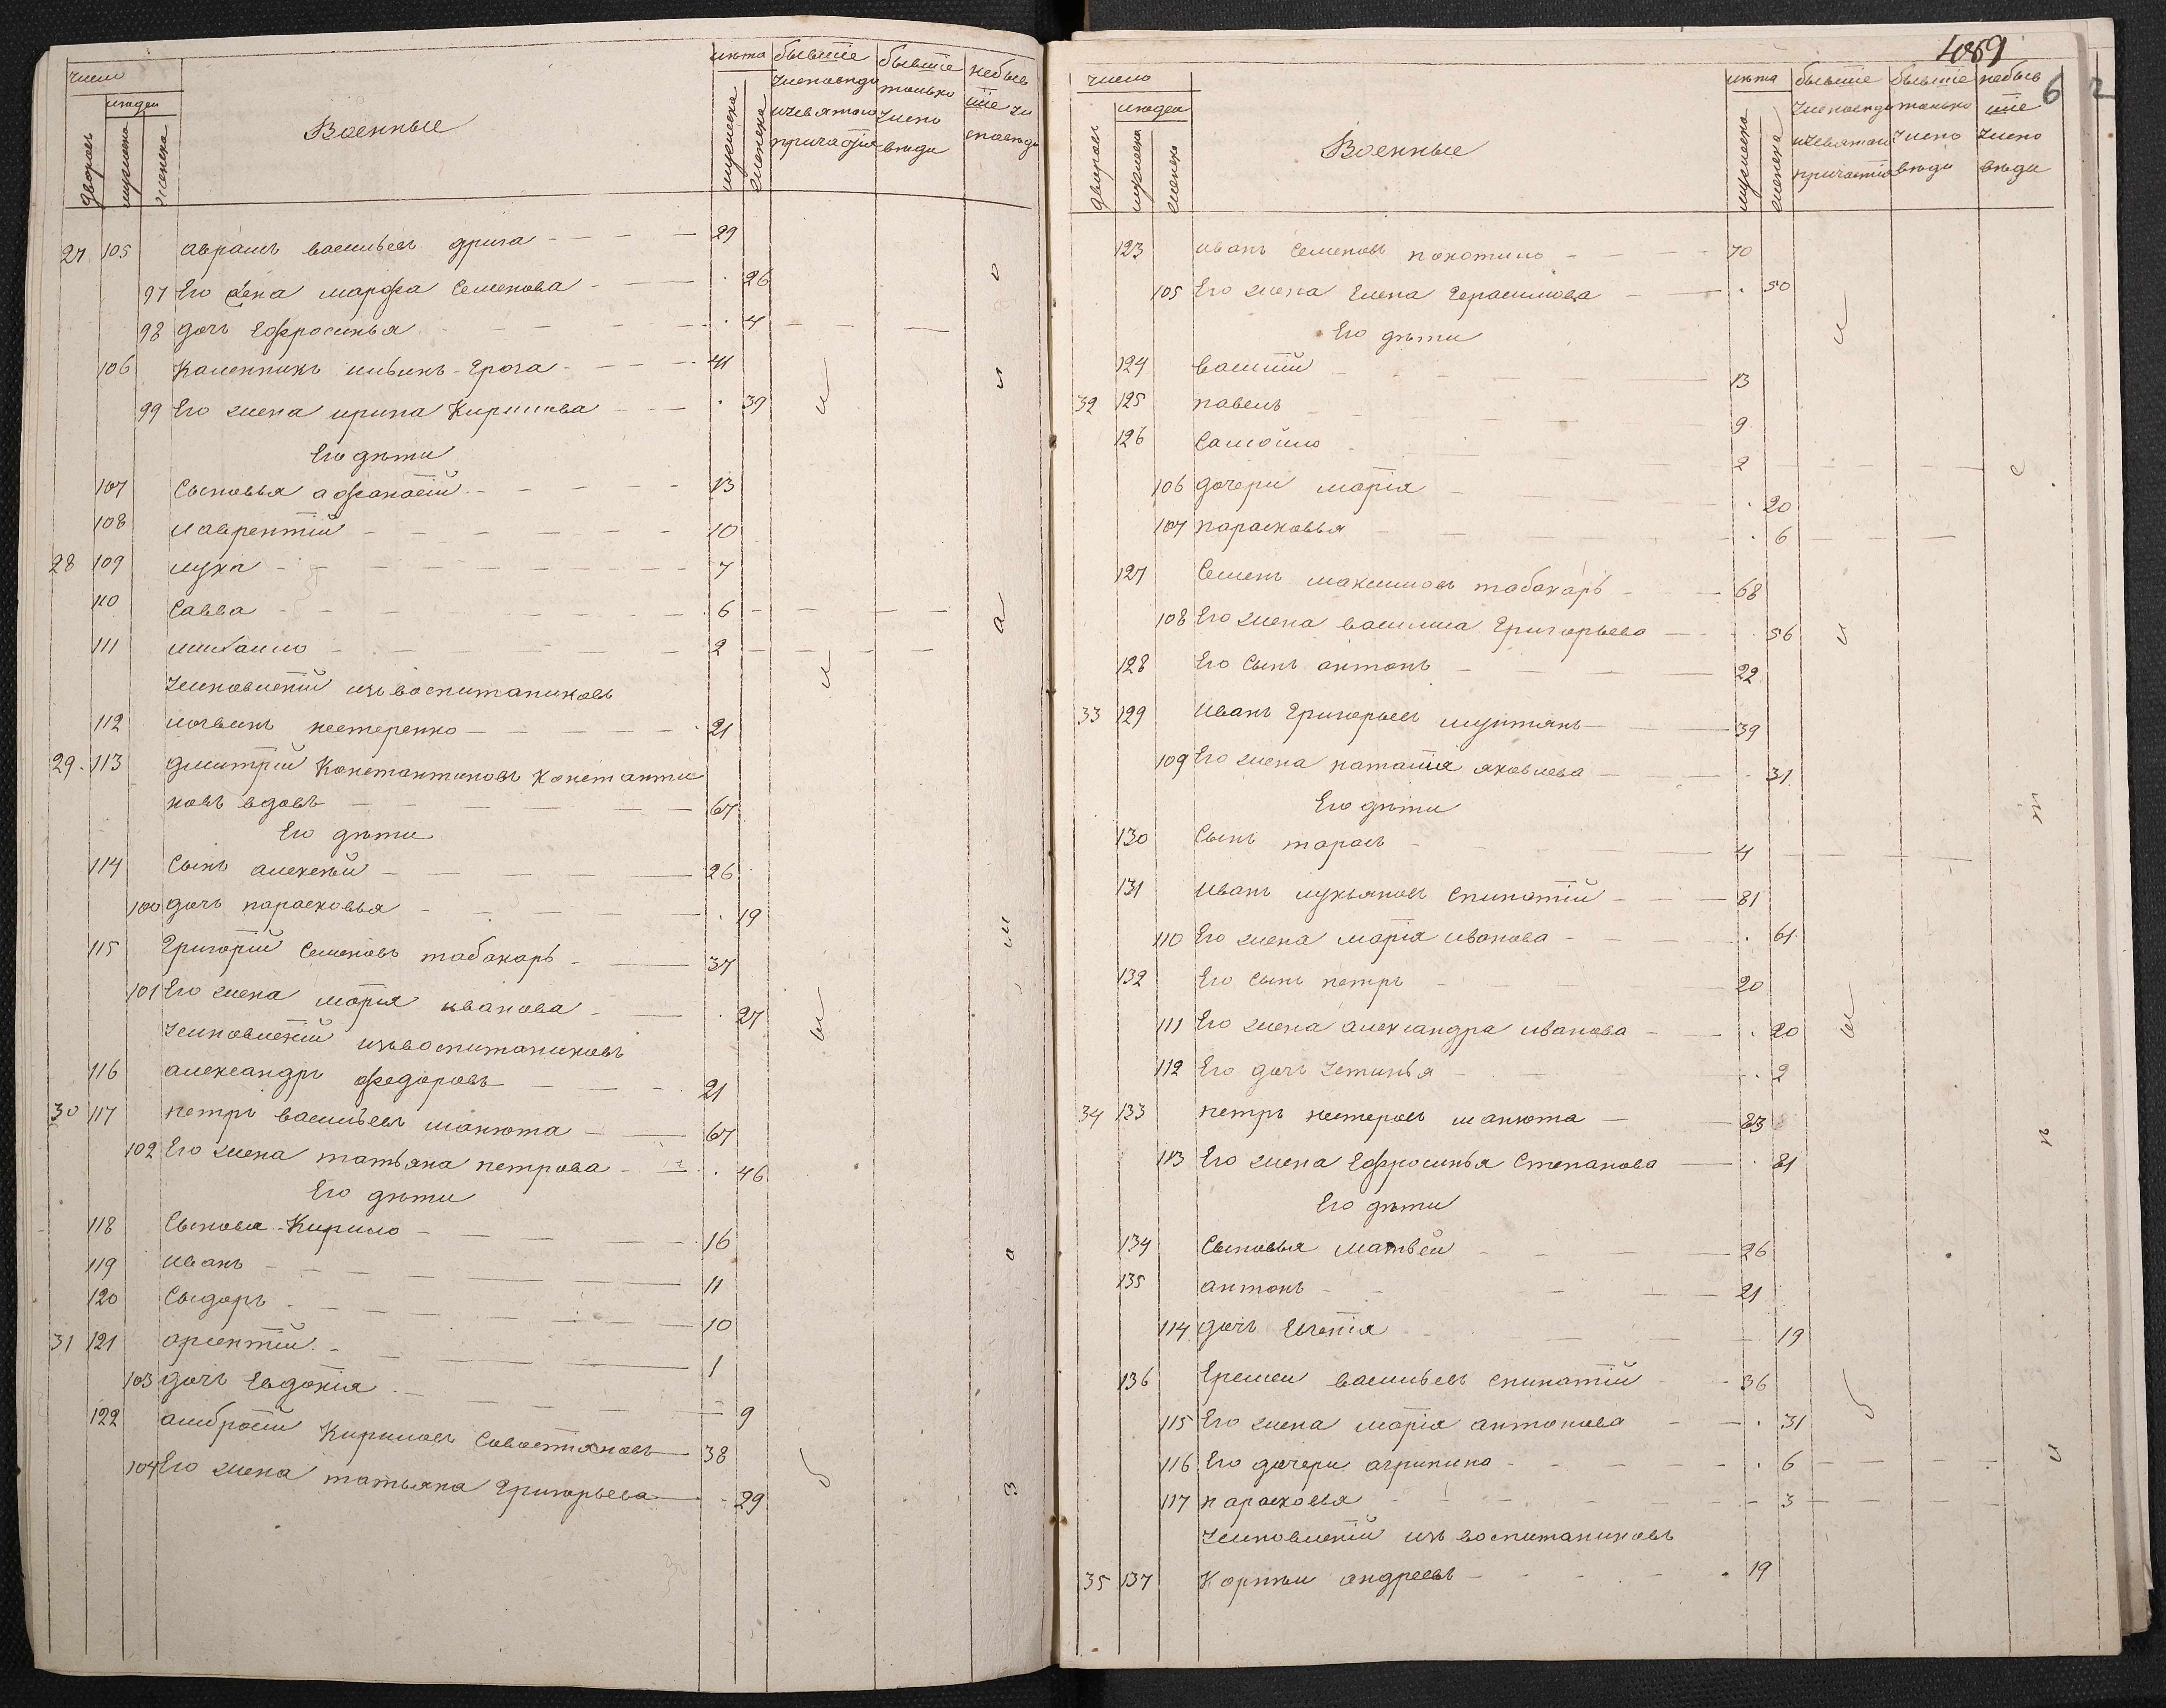 число
людей
дворовъ
мужеска
женска
Военные
лѣта
мужеска
женска
бывшіе
бывшіе
небыв
шіе
только
причастія
27 105 аврамъ васильевъ дрига 29
97 Его жена марфа Семенова 26
98 дочь Ефросинья 4
106 Каленникъ 41
99 Его жена ирина Кирилова 39
Его дѣти
107 Сыновья афанасій 13
108 лаврентій 10
28 109 лука 7
110 Савва 6
111 михаило 2
изъ воспитаниковъ
112 логвинъ нестеренко 21
29 113 дмитрій Константиновъ Константи
новъ вдовъ 67
Его дѣти
114 Сынъ алексѣй 26
100 дочь парасковья 19
115 Григорій Семеновъ табакарь 37
101 Его жена марія иванова 27
изъ воспитаниковъ
116 александръ федоровъ 21
30 117 петръ васильевъ манюта 67
102 Его жена татьяна петрова 46
Его дѣти
118 Сыновя Кирило 16
119 иванъ 11
120 Сыдоръ 10
31 121 орлентій 1
103 дочь Евдокія 9
122 амбросій Кириловъ Савостіяновъ 38
104 Его жена татьяна Григорьева 29
4089
6
число
людей
дворовъ
мужеска
женска
Военные
лѣта
мужеска
женска
бывшіе
бывшіе
небыв
шіе
только
причастія
123 иванъ Семеновъ покотило 70
105 Его жена Елена Герасимова 50
Его дѣти
124 василій 13
32 125 павелъ 9
126 Самойло 2
106 дочери марія 20
107 парасковья 6
127 Семенъ максимовъ табакарь 68
108 Его жена василиса Григорьева 56
128 Его Сынъ антонъ 22
33 129 Иванъ Григорьевъ мунтянъ 39
109 Его жена наталія яковлева 31
Его дѣти
130 Сынъ тарасъ 4
131 Иванъ лукьяновъ Спинатій 81
110 Его жена марія иванова 61
132 Его Сынъ петръ 20
111 Его жена александра иванова 20
112 Его дочь Устинья 2
34 133 петръ нестеровъ манюта 83
113 Его жена Ефросинья Степанова 81
Его дѣти
134 Сыновья матвѣй 26
135 антонъ 21
114 дочь Евгенія 19
136 Еремей васильевъ спинатій 36
115 Его жена марія антонова 31
116 Его дочери агрипина 6
117 парасковья 3
изъ воспитаниковъ
35 137 Корнѣй андреевъ 19